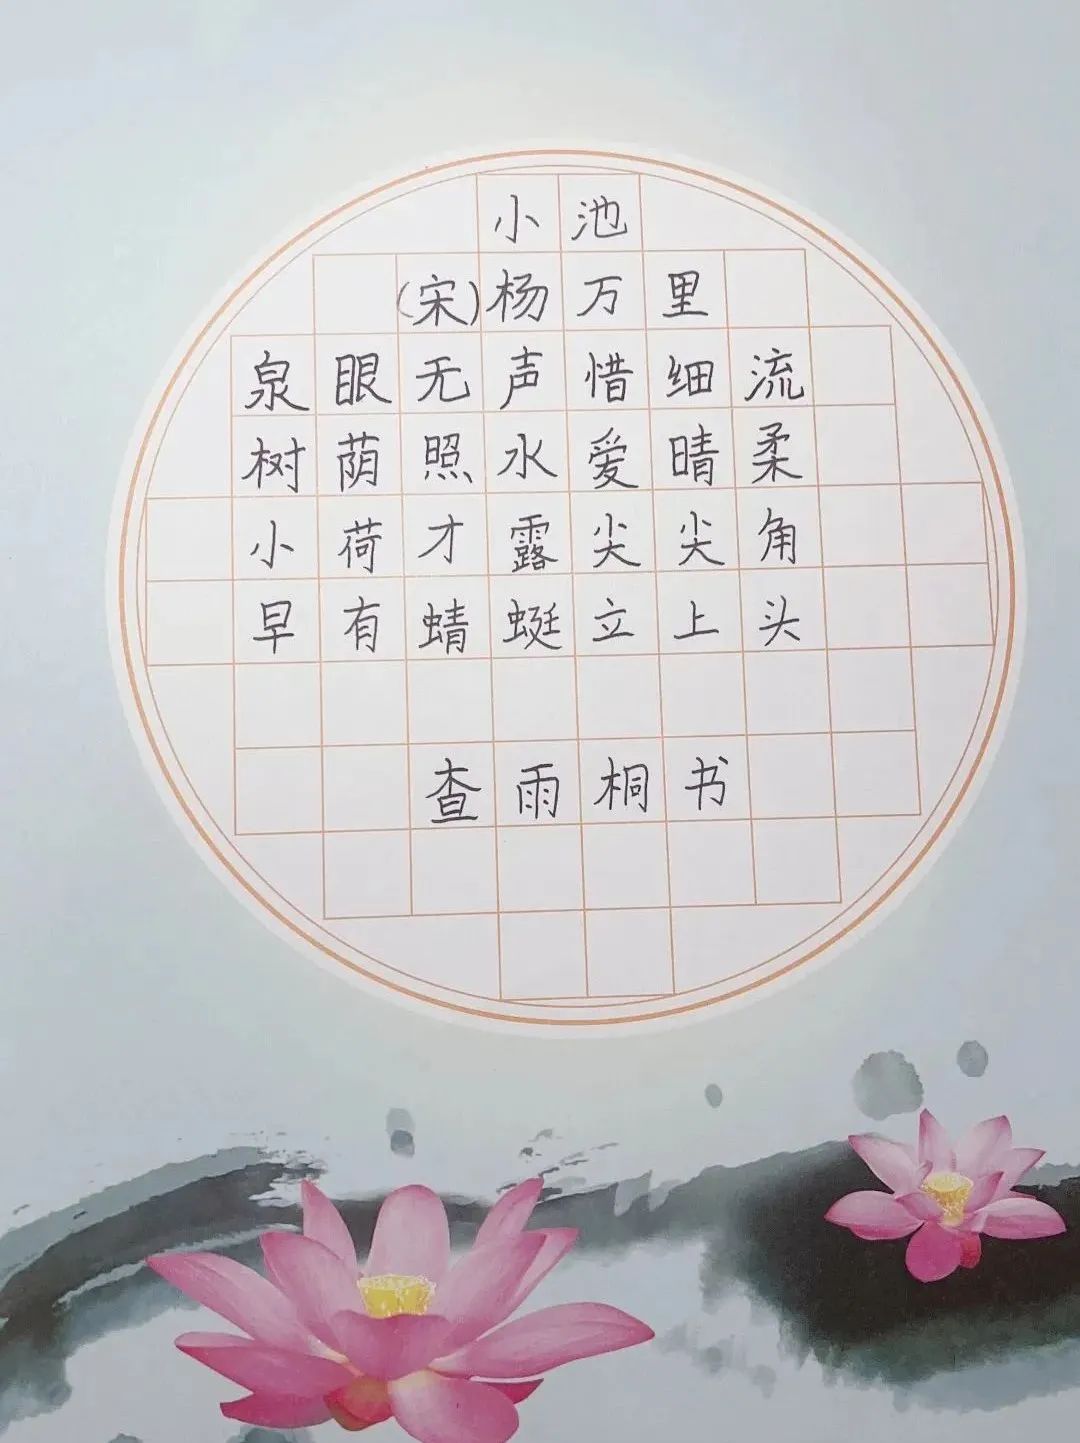 小池
(宋)杨万里
泉眼无声惜细流
树荫照水爱晴柔
小荷才露尖尖角
早有蜻蜓立上头
查雨桐书